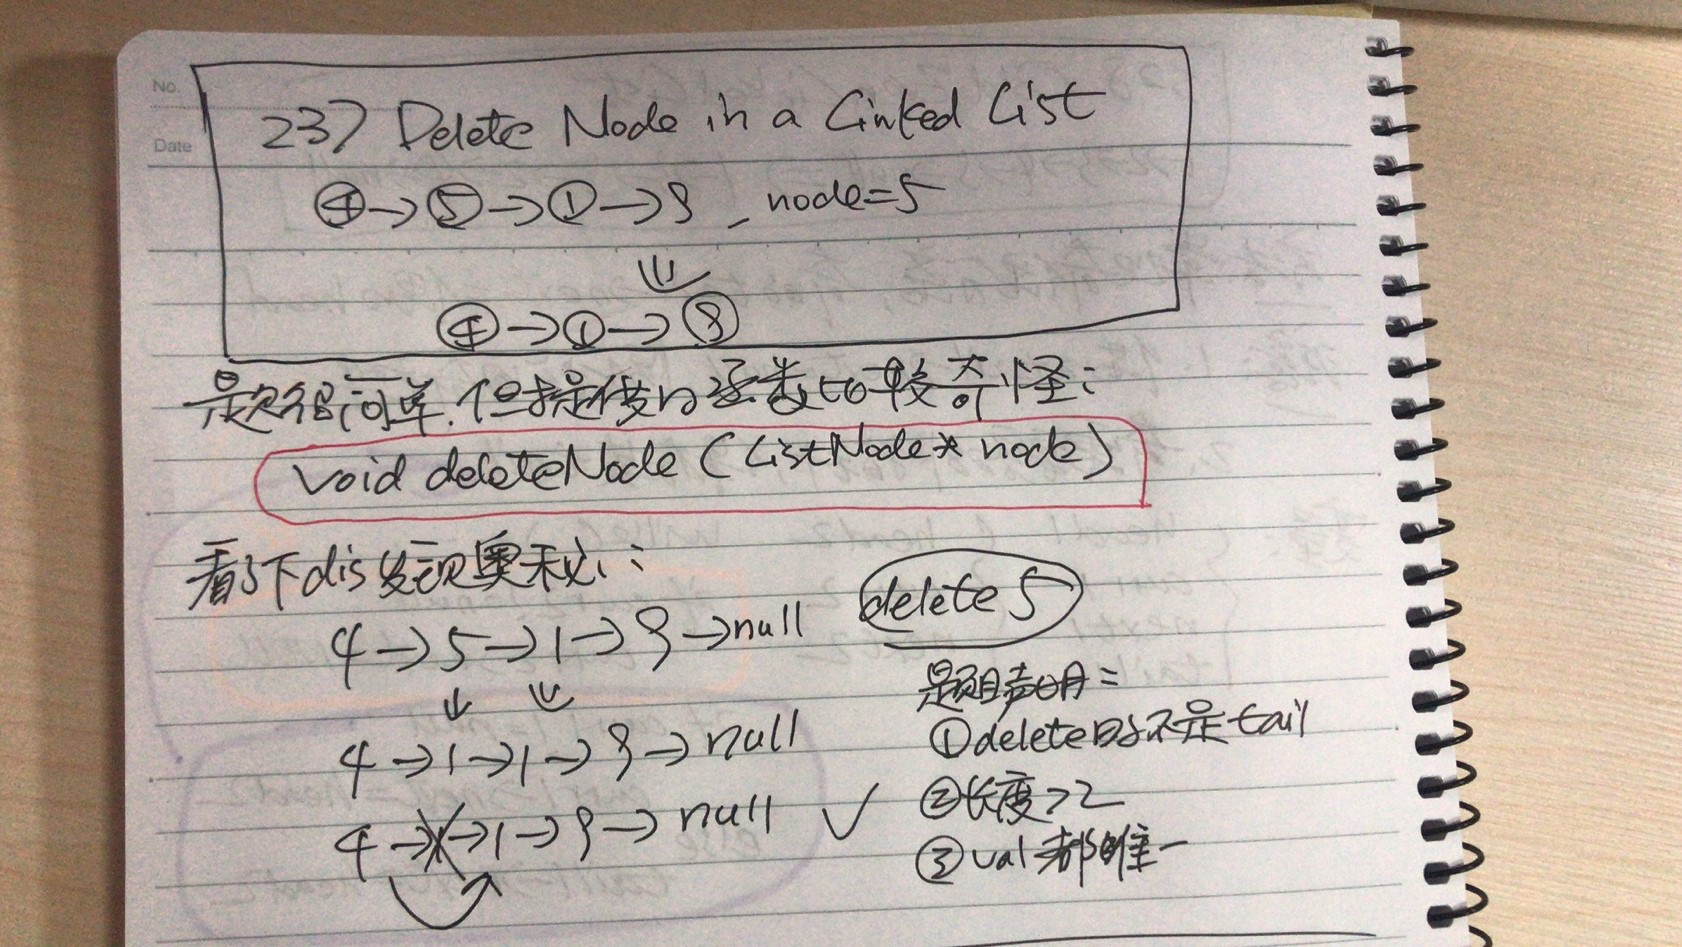 No.
Date
237 Delete Node in a Linked List
4→5→1→9, node=5
4→1→9
题很简单,但提供的函数比较奇怪:
void deleteNode (ListNode* node)
看了下dis发现奥秘:
4→5→1→9→null
delete 5
4→1→1→9→null
4→1→1→9→null ✓
题目声明:
①delete的不是tail
②长度>2
③val都唯一